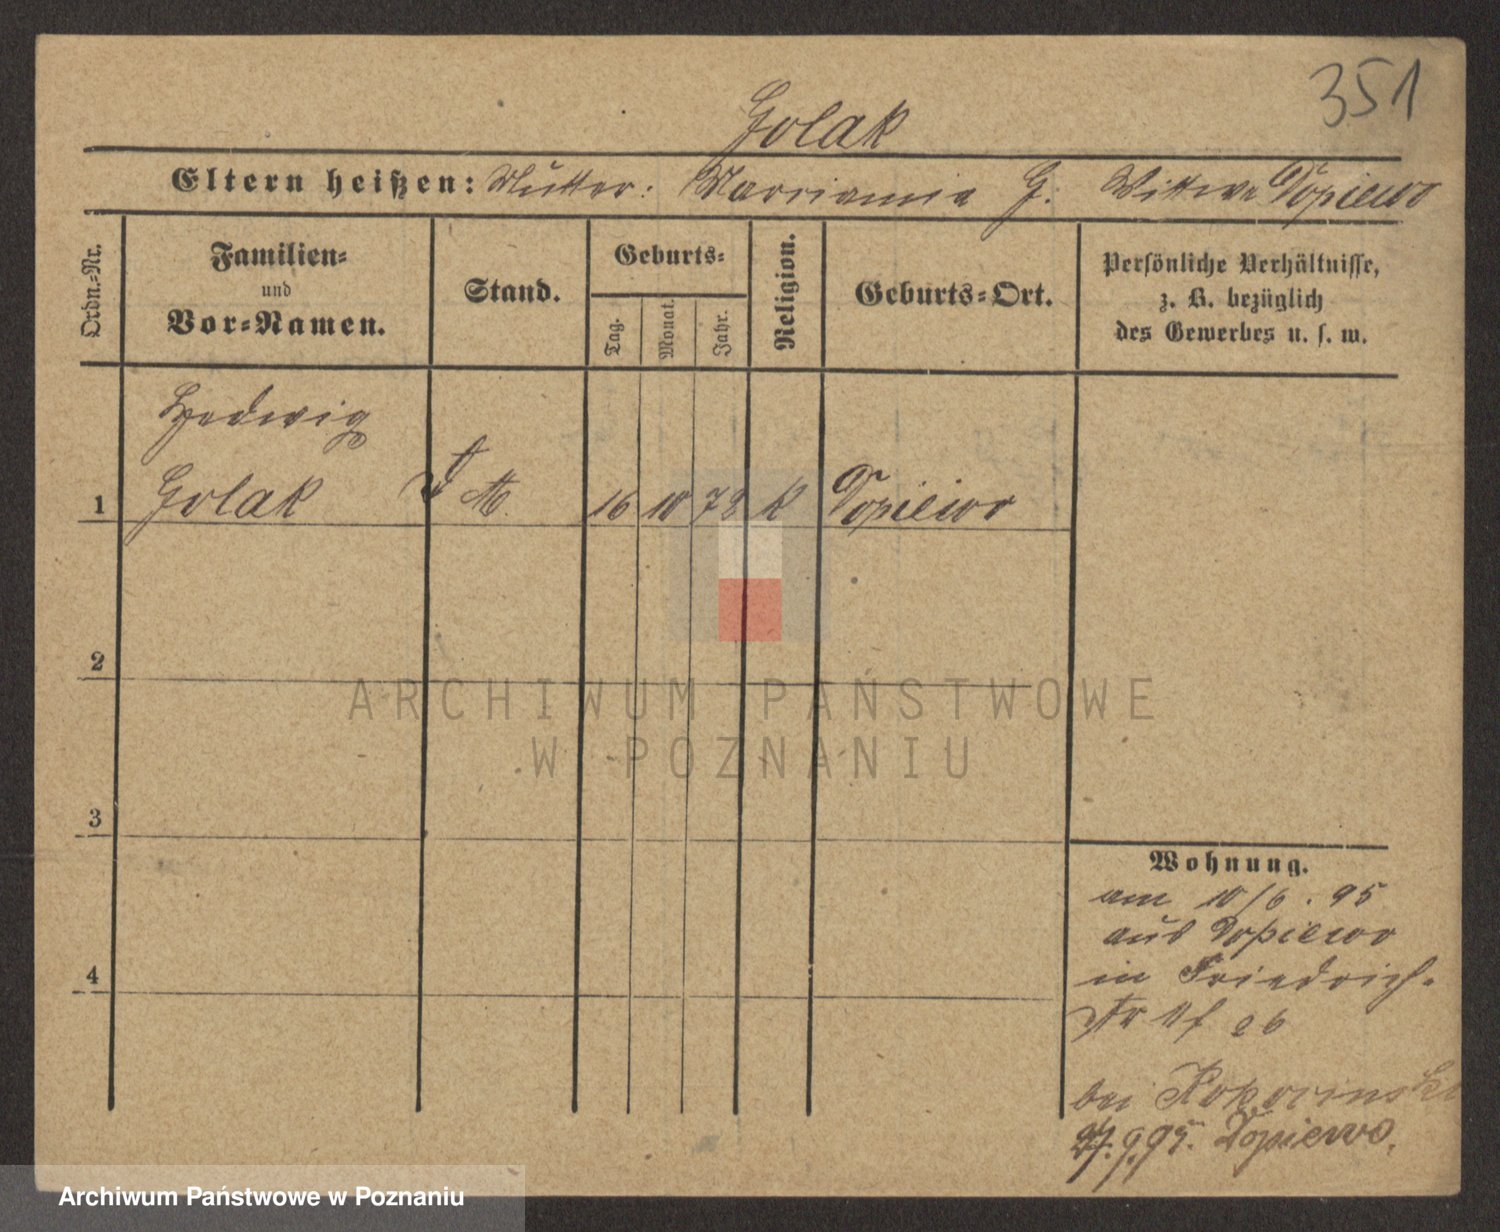 351
Golak
Eltern heißen: Mutter: Marrianna G. Wittwe Dopiewo
Ordn.-Nr.
Familien-
und
Vor-Namen.
Stand.
Geburts-
Tag.
Monat.
Jahr.
Religion.
Geburts-Ort.
Persönliche Verhältnisse,
z. B. bezüglich
des Gewerbes u. s. w.
Hedwig
1 Golak M. 16 10 78 K Dopiewo
2
3
4
Wohnung.
am 10/6. 95
aus Dopiewo
in Friedrich-
str 26
bei
27.9.95. Dopiewo.
ARCHIWUM PAŃSTWOWE
W POZNANIU
Archiwum Państwowe w Poznaniu